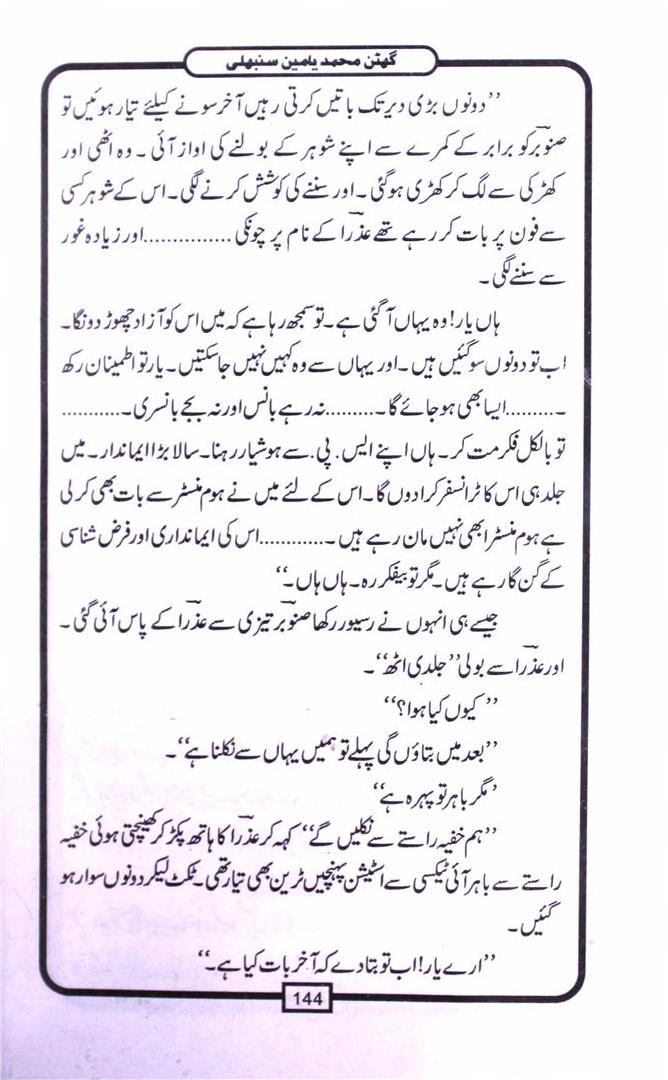 گھٹن محمد یامین سنبھلی
’’دونوں بڑی دیر تک باتیں کرتی رہیں آخر سونے کیلئے تیار ہوئیں تو
صنوبر کو برابر کے کمرے سے اپنے شوہر کے بولنے کی اواز آئی ۔ وہ اٹھی اور
کھڑکی سے لگ کر کھڑی ہوگئی ۔ اور سننے کی کوشش کرنے لگی ۔ اس کے شوہر کسی
سے فون پر بات کر رہے تھے عذرا کے نام پر چونکی ...............اور زیادہ غور
سے سننے لگی ۔
ہاں یار! وہ یہاں آ گئی ہے ۔ تو سمجھ رہا ہے کہ میں اس کو آزاد چھوڑ دونگا ۔
اب تو دونوں سو گئیں ہیں ۔ اور یہاں سے وہ کہیں نہیں جا سکتیں ۔ یار تو اطمینان رکھ
۔.........ایسا بھی ہو جائے گا ۔.........نہ رہے بانس اور نہ بجے بانسری ۔...........
تو بالکل فکر مت کر ۔ ہاں اپنے ایس . پی . سے ہوشیار رہنا ۔ سالا بڑا ایماندار ۔ میں
جلد ہی اس کا ٹرانسفر کرا دوں گا ۔ اس کے لئے میں نے ہوم منسٹر سے بات بھی کر لی
ہے ہوم منسٹر ابھی نہیں مان رہے ہیں ۔............اس کی ایمانداری اور فرض شناسی
کے گن گا رہے ہیں ۔ مگر تو بیفکر رہ ۔ ہاں ہاں ۔‘‘
جیسے ہی انہوں نے رسیور رکھا صنوبر تیزی سے عذرا کے پاس آئی گئی ۔
اور عذرا سے بولی ’’جلدی اٹھ‘‘ ۔
’’ کیوں کیا ہوا؟‘‘
’’بعد میں بتاؤں گی پہلے تو ہمیں یہاں سے نکلنا ہے‘‘ ۔
’مگر باہر تو پہرہ ہے‘‘
’’ہم خفیہ راستے سے نکلیں گے‘‘ کہہ کر عذرا کا ہاتھ پکڑ کر کھینچتی ہوئی خفیہ
راستے سے باہر آئی ٹیکسی سے اسٹیشن پہنچیں ٹرین بھی تیار تھی ۔ ٹکٹ لیکر دونوں سوار ہو
گئیں ۔
’’ارے یار! اب تو بتا دے کہ آخر بات کیا ہے ۔‘‘
144